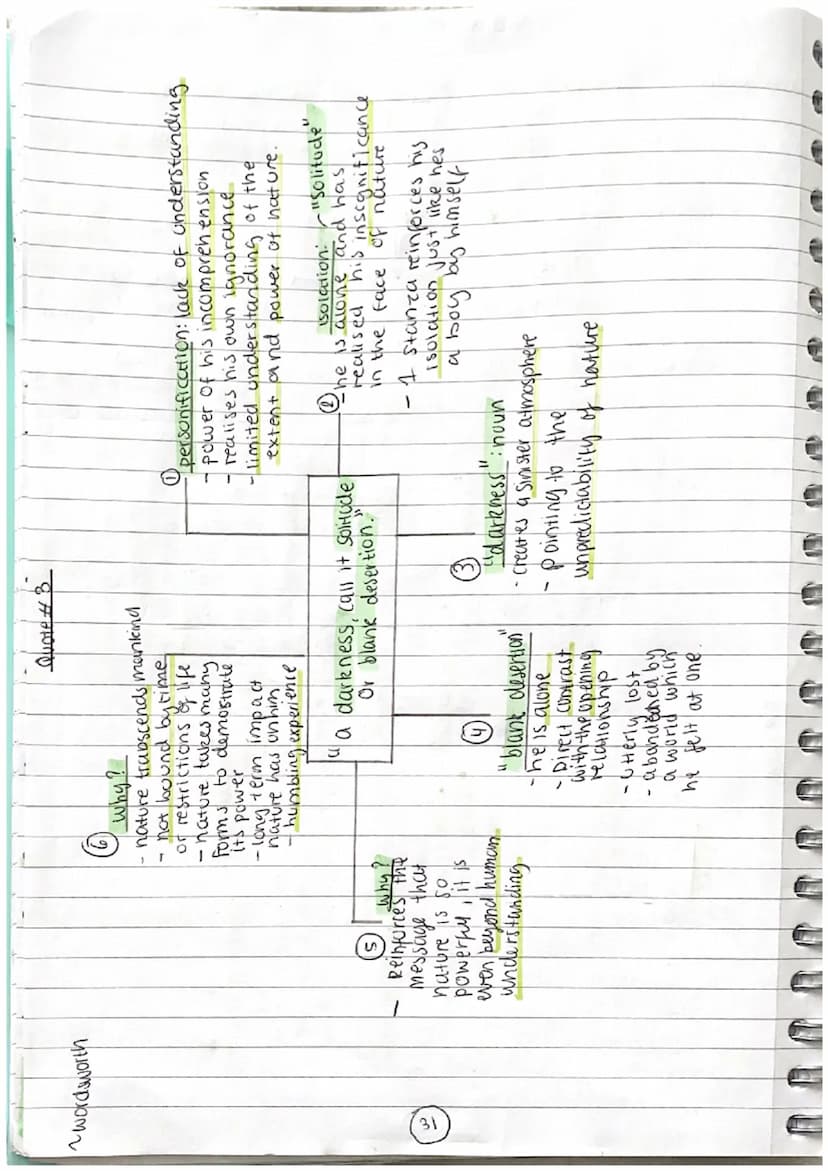 ~wordsworth
Quote # 3
"a darkness, call it solitude
Or blank desertion."
① personification: lack of understanding
- power of his incomprehension
- realises his own ignorance
- limited understanding of the
extent and power of nature.
② isolation: "solitude"
- he is alone and has
realised his insignificance
in the face of nature
- 1 stanza reinforces his
isolation just like hes
a boy by himself
③ "darkness": noun
- creates a sinister atmosphere
- pointing to the
unpredictability of nature
④ "blank desertion"
- he is alone
- Direct contrast
with the opening
relationship
- utterly lost
- abandened by
a world which
he felt at one.
⑤ Why?
- Reinforces the
message that
nature is so
powerful, it is
even beyond human
understanding
⑥ Why?
- nature transcends mankind
- not bound by time
or restrictions of life
- nature takes many
forms to demostrate
its power
- long term impact
nature has on him
- humbling experience
31